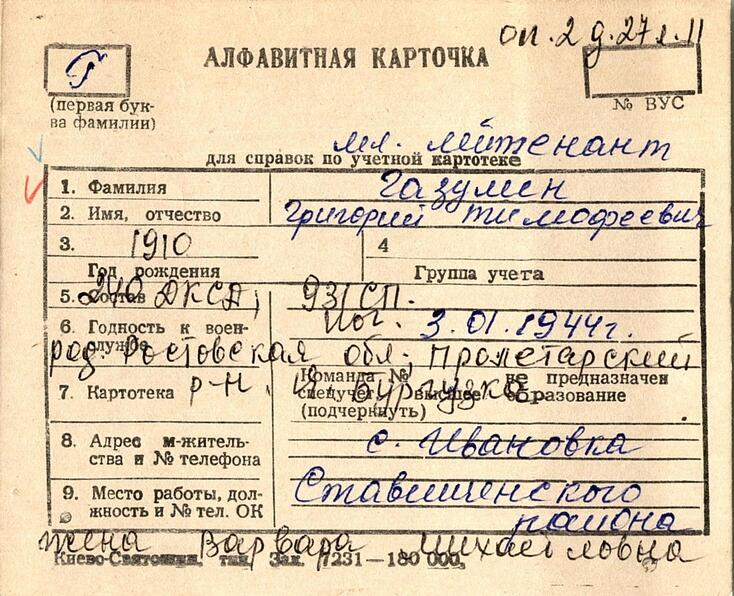 оп. 2 д. 27 л. 11
АЛФАВИТНАЯ КАРТОЧКА
Г
(первая бук-
ва фамилии)
№ ВУС
мл. лейтенант
для справок по учетной картотеке
1. Фамилия Газумен
2. Имя, отчество Григорий Тимофеевич
3. 1910 4
Год рождения Группа учета
5. Состав 240 ДКСД, 931 СП.
6. Годность к воен-
службе
Пог. 3.01.1944г.
род. Ростовская обл., Пролетарский
7. Картотека р-н,
Команда № не предназначен
спецучет, высшее образование
(подчеркнуть)
8. Адрес м-житель-
ства и № телефона
с. Ивановка
9. Место работы, дол-
жность и № тел. ОК
Ставищенского
района
жена Варвара Михайловна
Киево-Святошин. тип. Зак. 7231—180 000,